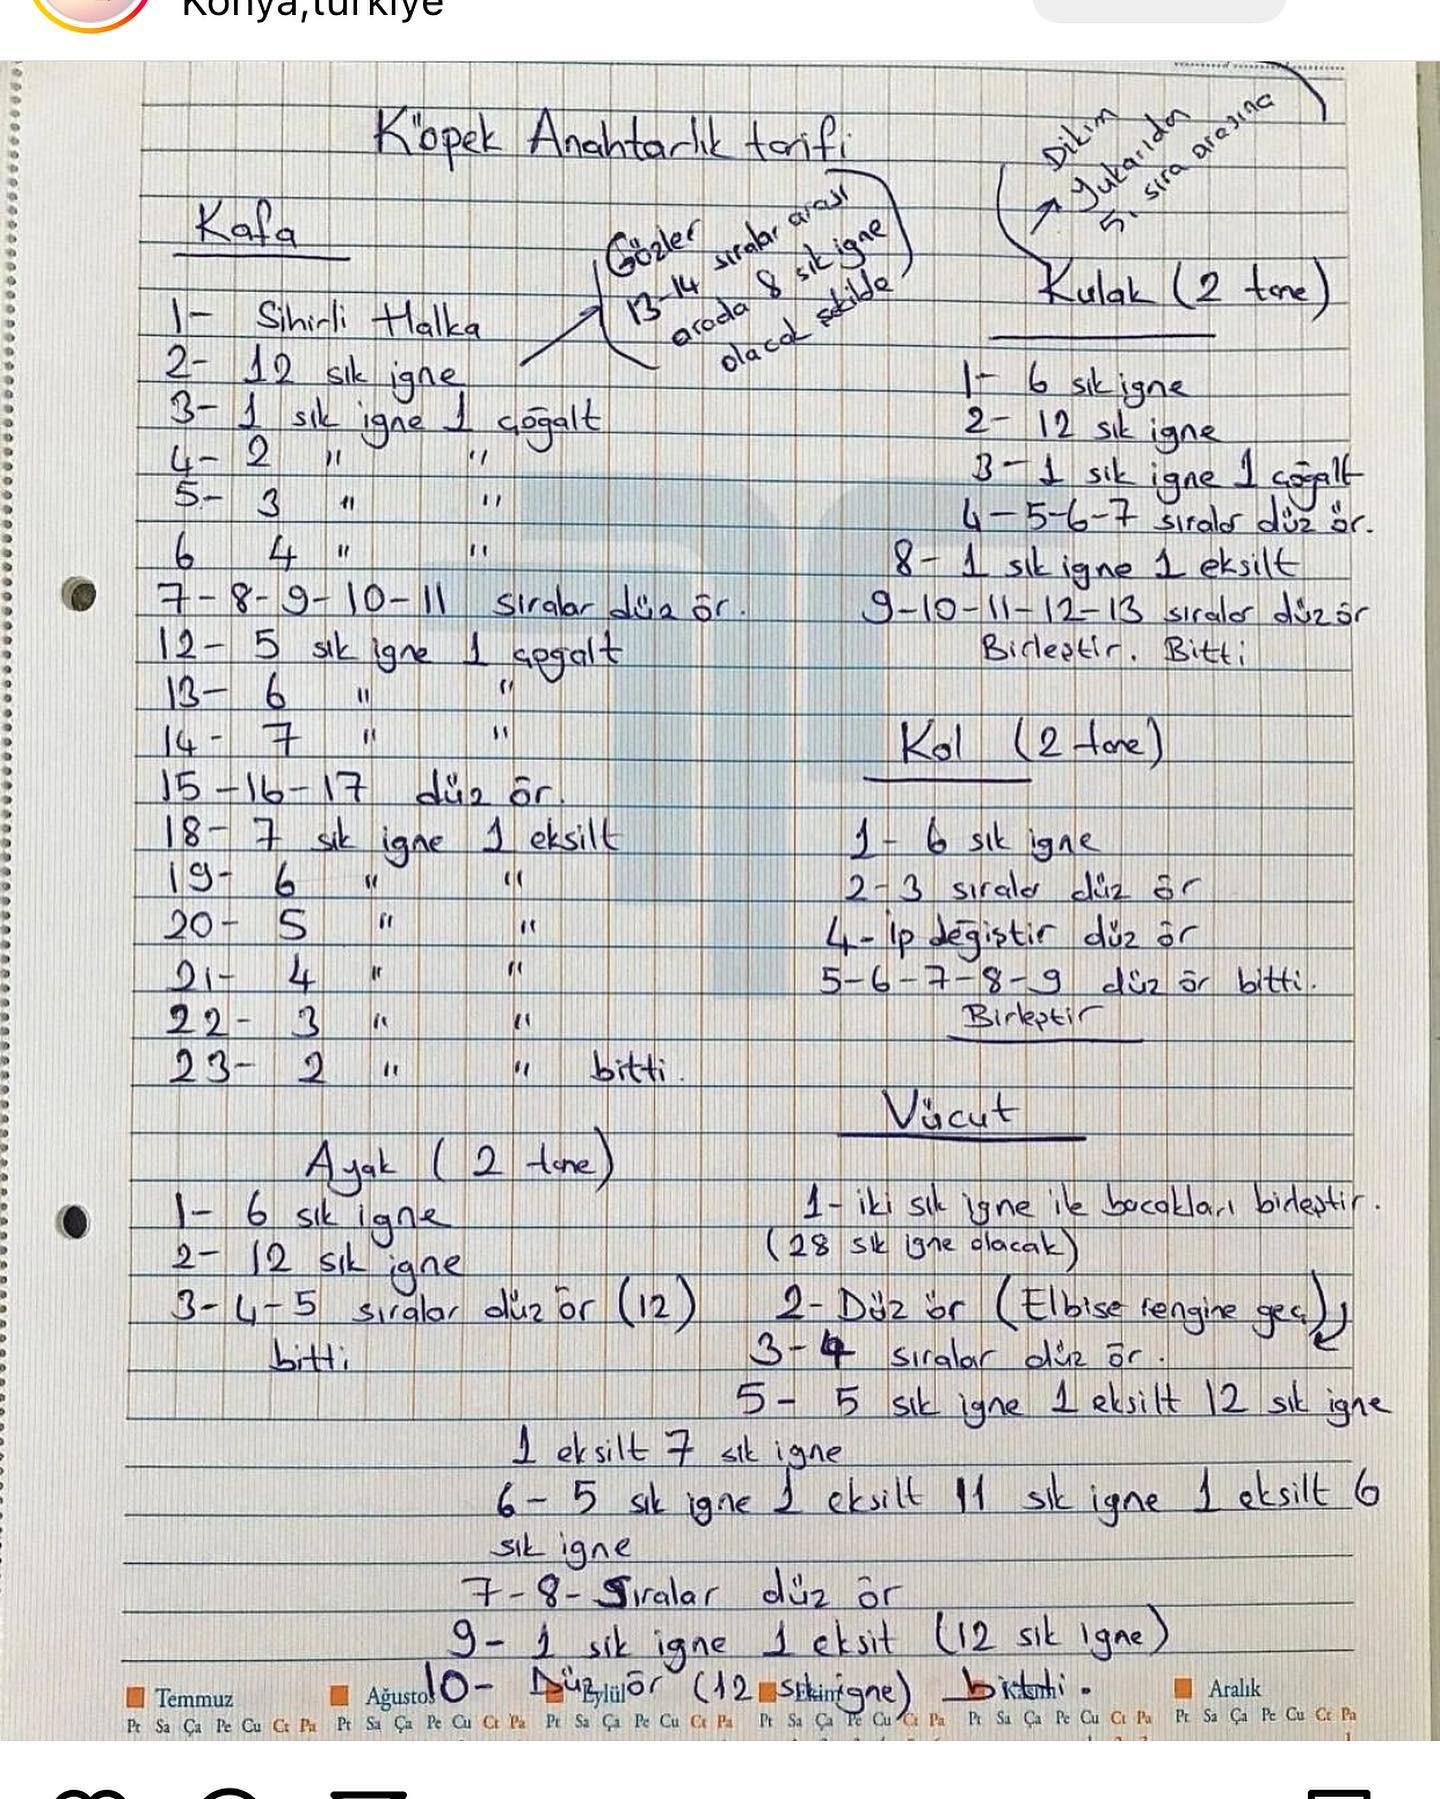 Konya,türkiye
Köpek Anahtarlık tarifi
Kafa
Gözler
13-14 sıralar arası
arada 8 sık igne
olacak şekilde
1- Sihirli Halka
2- 12 sık igne
3- 1 sık igne 1 çoğalt
4- 2 " "
5- 3 " "
6 4 " "
7-8-9-10-11 sıralar düz ör.
12- 5 sık igne 1 çogalt
13- 6 " "
14- 7 " "
15-16-17 düz ör.
18- 7 sık igne 1 eksilt
19- 6 " "
20- 5 " "
21- 4 " "
22- 3 " "
23- 2 " " bitti.
Ayak (2 tane)
1- 6 sık igne
2- 12 sık igne
3-4-5 sıralar düz ör (12)
bitti
Dikim
yukarıdan
5. sıra arasına
Kulak (2 tane)
1- 6 sık igne
2- 12 sık igne
3- 1 sık igne 1 çoğalt
4-5-6-7 sıralar düz ör.
8- 1 sık igne 1 eksilt
9-10-11-12-13 sıralar düz ör
Birleştir. Bitti
Kol (2 tane)
1- 6 sık igne
2-3 sıralar düz ör
4- ip değiştir düz ör
5-6-7-8-9 düz ör bitti.
Birleştir
Vücut
1- iki sık igne ile bacakları birleştir.
(28 sık igne olacak)
2- Düz ör (Elbise rengine geç)
3-4 sıralar düz ör.
5- 5 sık igne 1 eksilt 12 sık igne
1 eksilt 7 sık igne
6- 5 sık igne 1 eksilt 11 sık igne 1 eksilt 6
sık igne
7-8- Sıralar düz ör
9- 1 sık igne 1 eksit (12 sık igne)
10- Düz ör (12 sık igne) bitti.
Temmuz Ağustos Eylül Ekim Kasım Aralık
Pt Sa Ça Pe Cu Ct Pa Pt Sa Ça Pe Cu Ct Pa Pt Sa Ça Pe Cu Ct Pa Pt Sa Ça Pe Cu Ct Pa Pt Sa Ça Pe Cu Ct Pa Pt Sa Ça Pe Cu Ct Pa